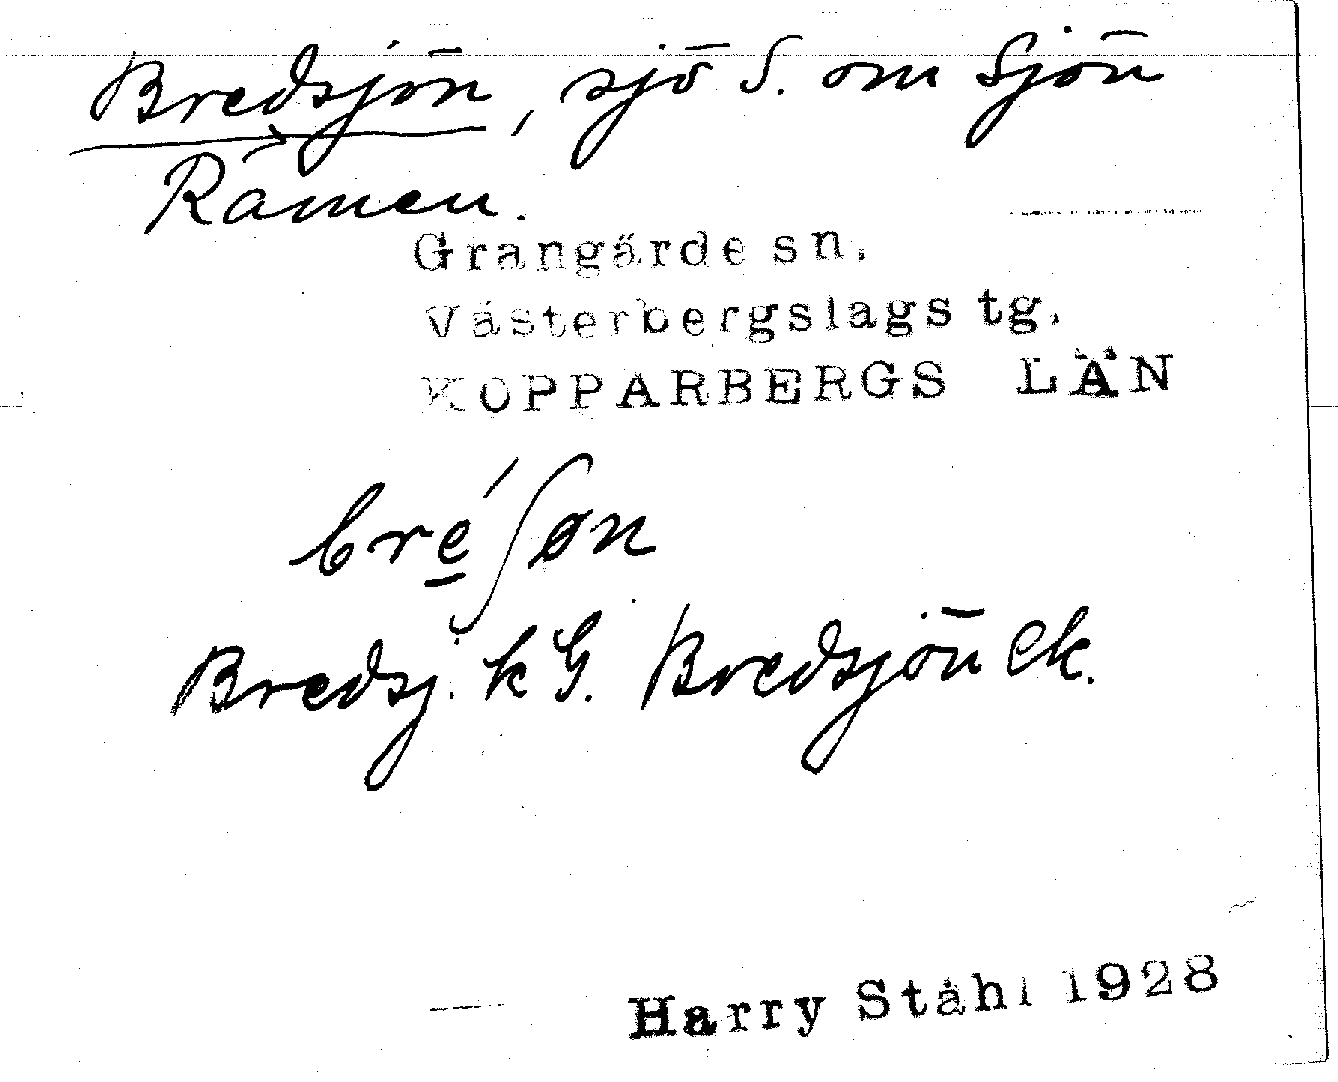 Bredsjön, sjö S. om Sjön
Råmen.
Grangärde sn.
Västerbergslags tg.
KOPPARBERGS LÄN
bré̲ʃøn
Bredsj. kG. Bredsjön Ek.
Harry Ståhl 1928